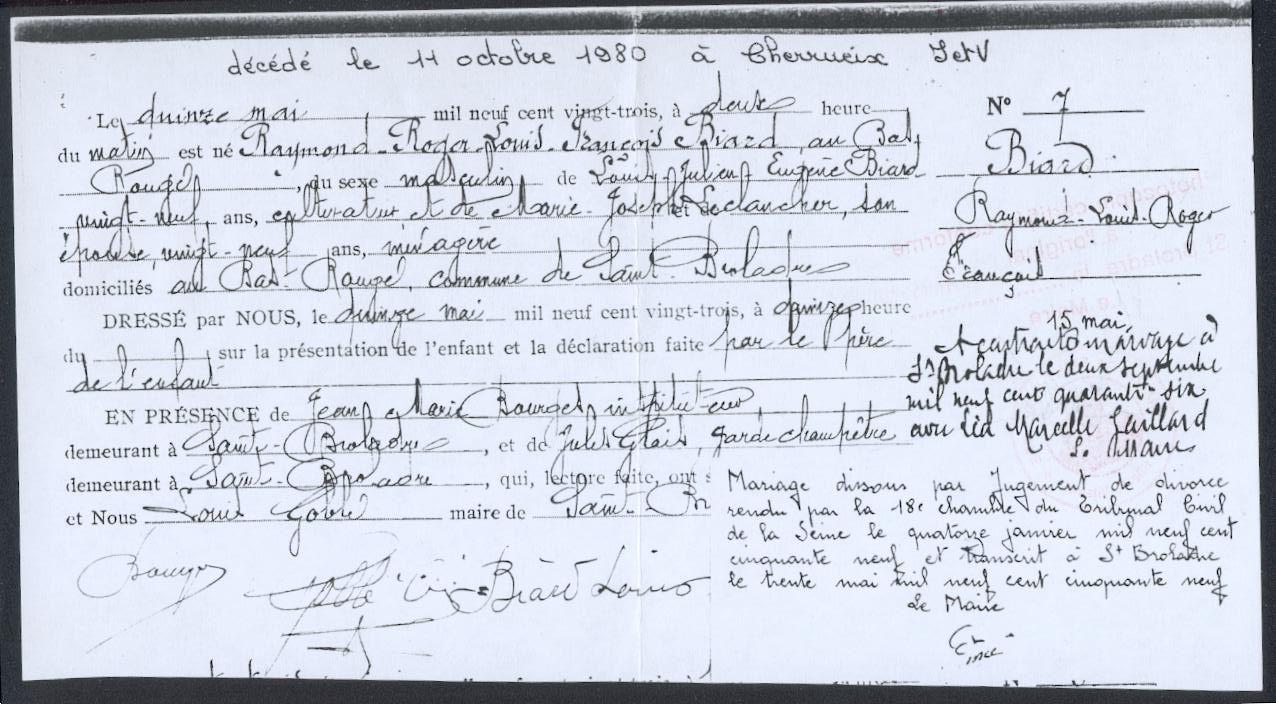 décédé le 11 octobre 1980 à Cherrueix I et V
Le quinze mai mil neuf cent vingt-trois, à deux heure
du matin est né Raymond-Roger-Louis-François Biard, au Bas
Rougel, du sexe masculin de Louis Julien Eugène Biard
vingt-neuf ans, cultivateur et de Marie-Joseph Leclancher, son
épouse, vingt-neuf ans, ménagère
domiciliés au Bas-Rougel, commune de Saint-Broladre
DRESSÉ par NOUS, le quinze mai mil neuf cent vingt-trois, à quinze heure
du sur la présentation de l'enfant et la déclaration faite par le père
de l'enfant
EN PRÉSENCE de Jean Marie Bourges instituteur,
demeurant à Saint-Broladre, et de Jules Glais, garde champêtre
demeurant à Saint-Broladre, qui, lecture faite, ont s
et Nous Louis Gobré maire de Saint-Br
Bourges
Biard Louis
N° 7
Biard
Raymond-Louis-Roger
François
15 mai
A contracté mariage à
St Broladre le deux septembre
mil neuf cent quarante-six
avec Léa Marcelle Gaillard
Mariage dissous par Jugement de divorce
rendu par la 18e chambre du Tribunal Civil
de la Seine le quatorze janvier mil neuf cent
cinquante neuf et transcrit à St Broladre
le trente mai mil neuf cent cinquante neuf
Le Maire